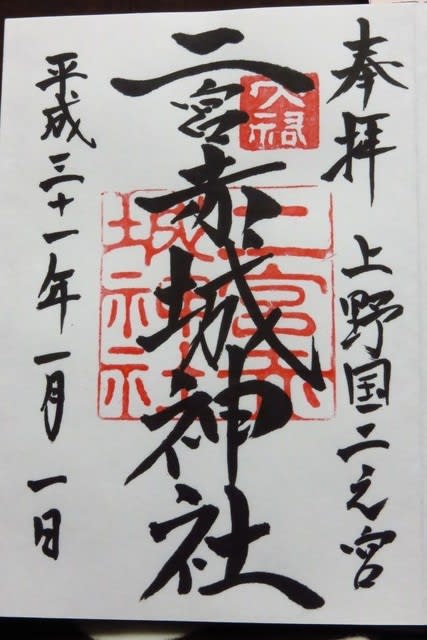 奉拝　上野国二之宮
二宮赤城神社
平成三十一年一月一日
二宮赤
城神社